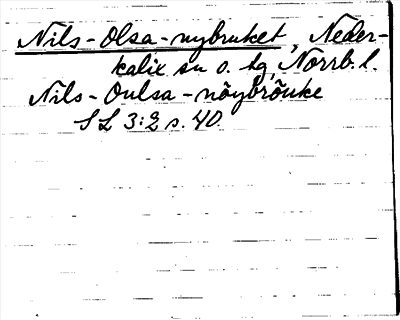 Nils-Olsa-nybruket, Neder-
kalix sn o. hd, Norrb. l.
Nils-Oulsa-nöybröuke
SL 3:2 s. 40.